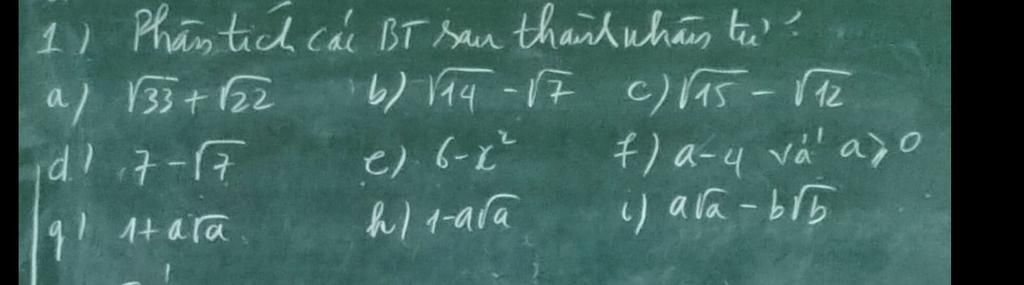 1) Phân tích các BT sau thành nhân tử:
a) √33 + √22 b) √14 - √7 c) √15 - √12
d) 7 - √7 e) 6 - x² f) a - 4 với a ≥ 0
g) 1 + a√a h) 1 - a√a i) a√a - b√b